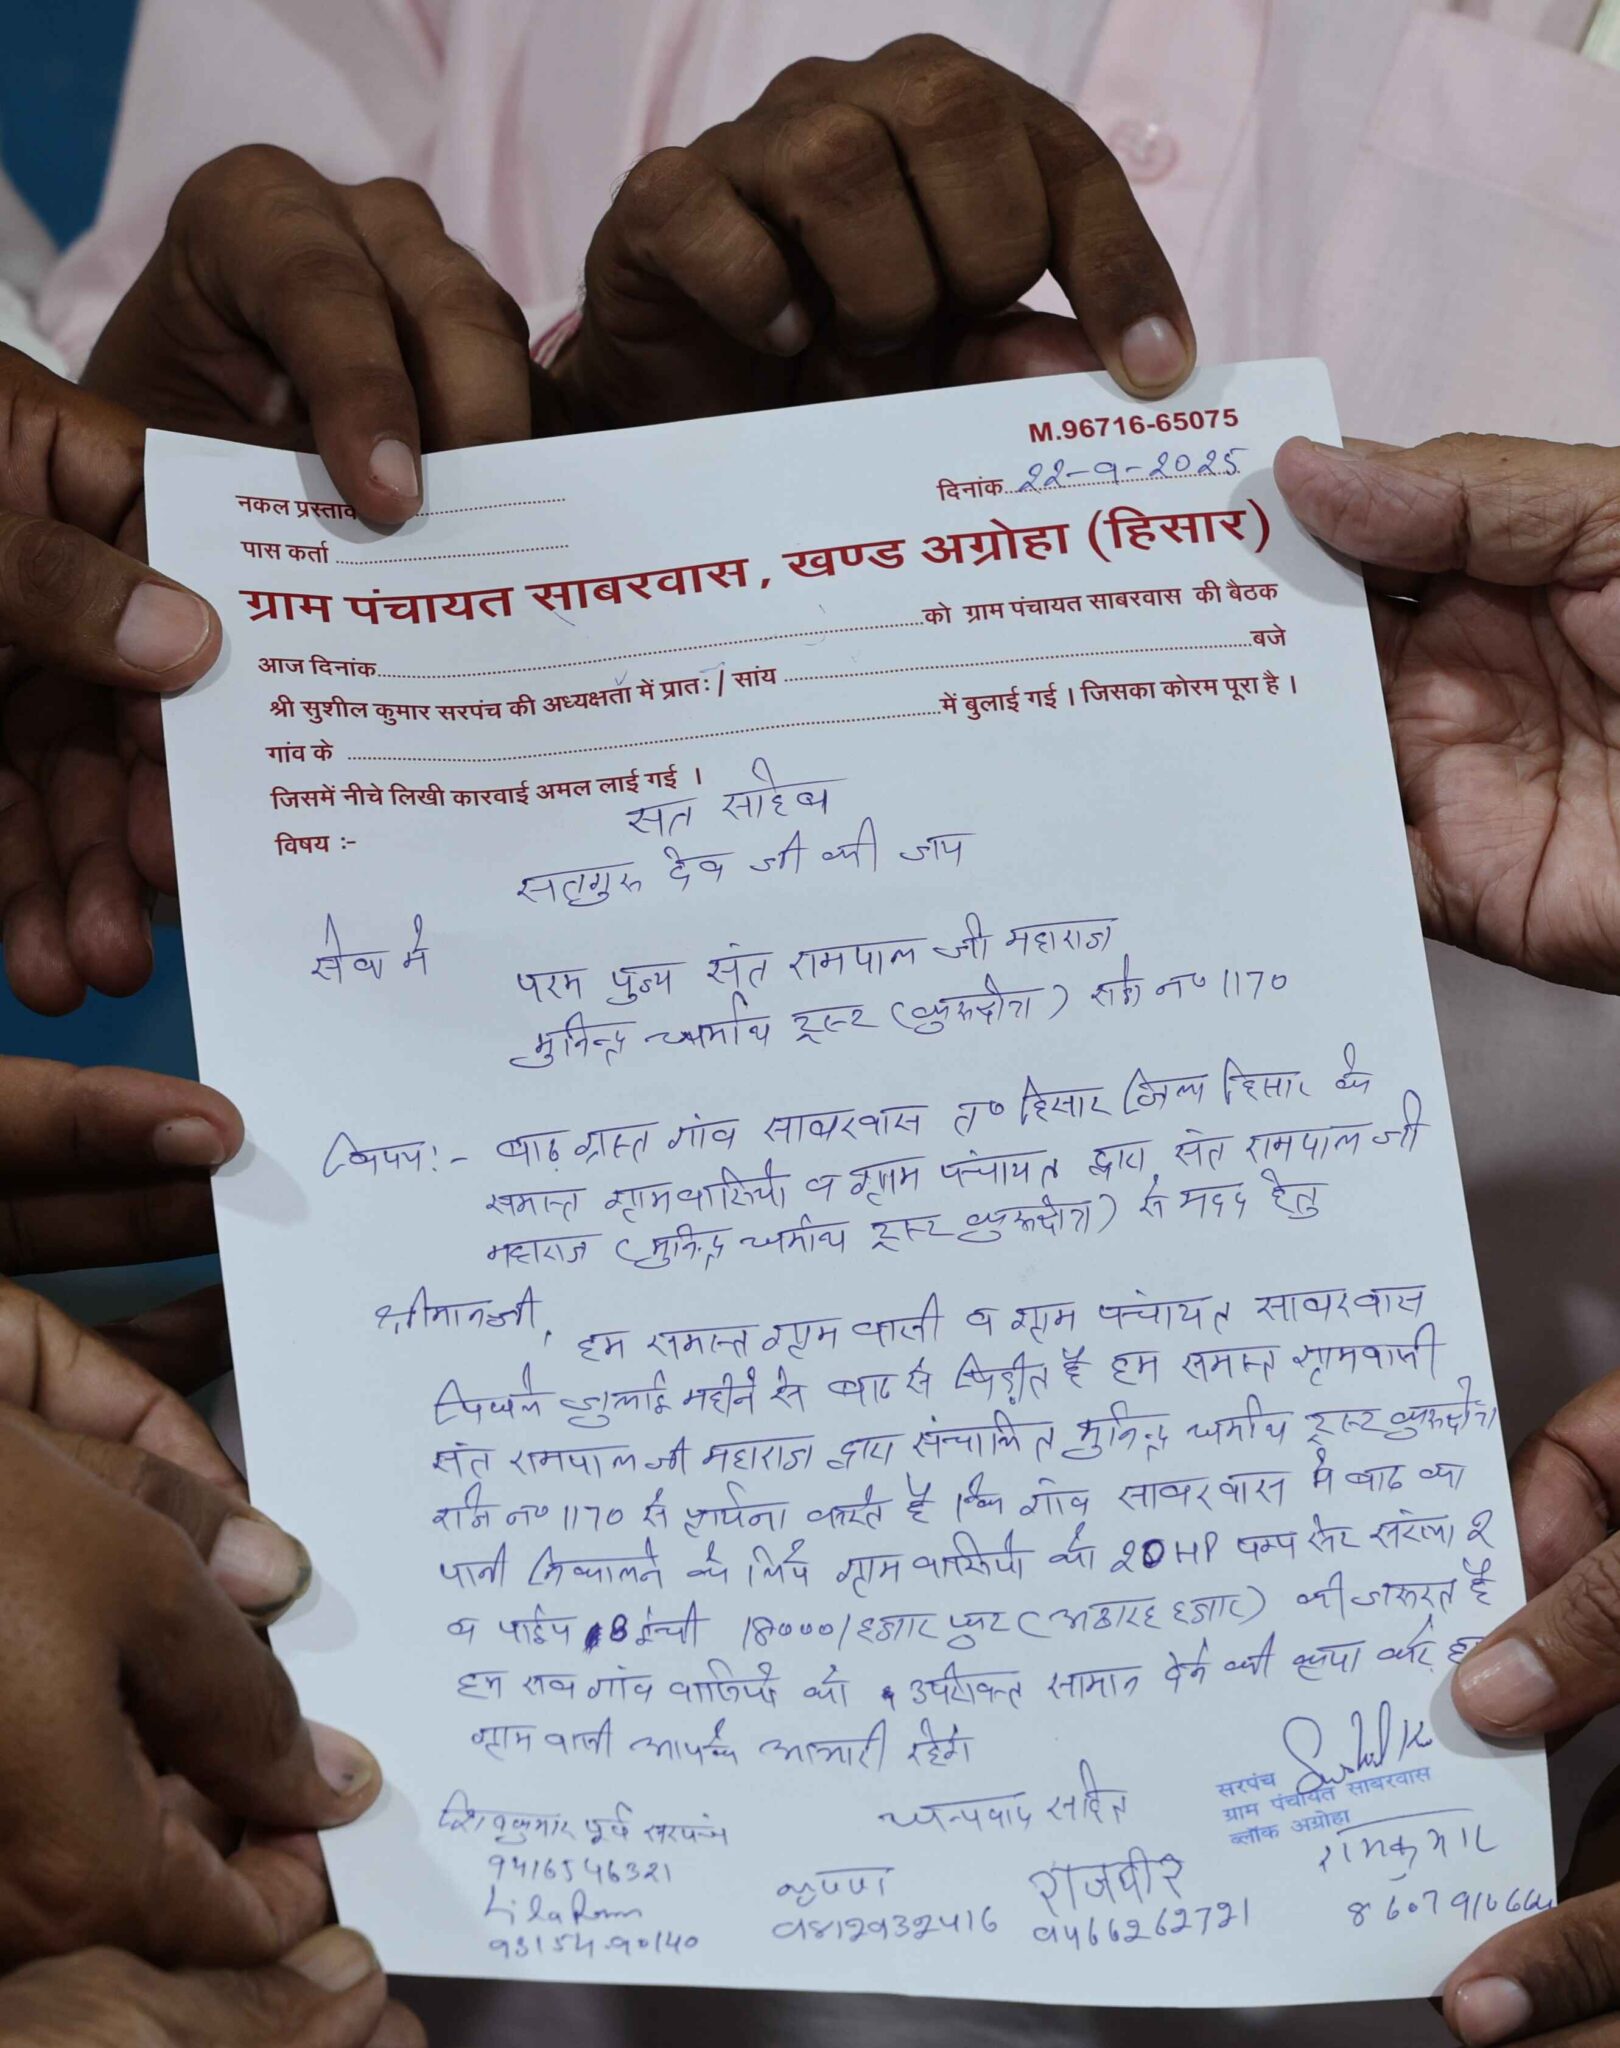 M.96716-65075
नकल प्रस्ताव
दिनांक 22-9-2025
पास कर्ता
ग्राम पंचायत साबरवास, खण्ड अग्रोहा (हिसार)
आज दिनांक को ग्राम पंचायत साबरवास की बैठक
श्री सुशील कुमार सरपंच की अध्यक्षता में प्रातः / सांय बजे
गांव के में बुलाई गई । जिसका कोरम पूरा है ।
जिसमें नीचे लिखी कारवाई अमल लाई गई ।
विषय :-
सत साहेब
सतगुरु देव जी की जय
सेवा मे
परम पुज्य संत रामपाल जी महाराज
मुनिन्द्र धर्मार्थ ट्रस्ट (कुरुक्षेत्रा) रजि न० 1170
विषय:- बाढ ग्रस्त गांव साबरवास त० हिसार जिला हिसार के
समस्त ग्रामवासियो व ग्राम पंचायत द्वारा संत रामपाल जी
महाराज (मुनिन्द्र धर्मार्थ ट्रस्ट कुरुक्षेत्रा) से मदद हेतु
श्रीमानजी,
हम समस्त ग्राम वासी व ग्राम पंचायत साबरवास
पिछले जुलाई महीने से बाढ से पिड़ीत है हम समस्त ग्रामवासी
संत रामपाल जी महाराज द्वारा संचालित मुनिन्द्र धर्मार्थ ट्रस्ट कुरुक्षेत्रा
रजि न० 1170 से प्रार्थना करते है कि गांव साबरवास मे बाढ का
पानी निकालने के लिए ग्राम वासियो को 20 HP पम्प सेट संख्या 2
व पाईप 8 ईन्ची 18000/ हजार फुट (अठारह हजार) की जरूरत है
हम सब गांव वासियो को उपरोक्त सामान देने की कृपा करें
ग्राम वासी आपके आभारी रहेगे
धन्यवाद सहित
Sushil K
सरपंच
ग्राम पंचायत साबरवास
ब्लॉक अग्रोहा
शिवकुमार पूर्व सरपंच
9416546321
Lila Ram
93154-90140
कृष्ण
9812932416
राजबीर
9466262721
रामकुमार
8607910664